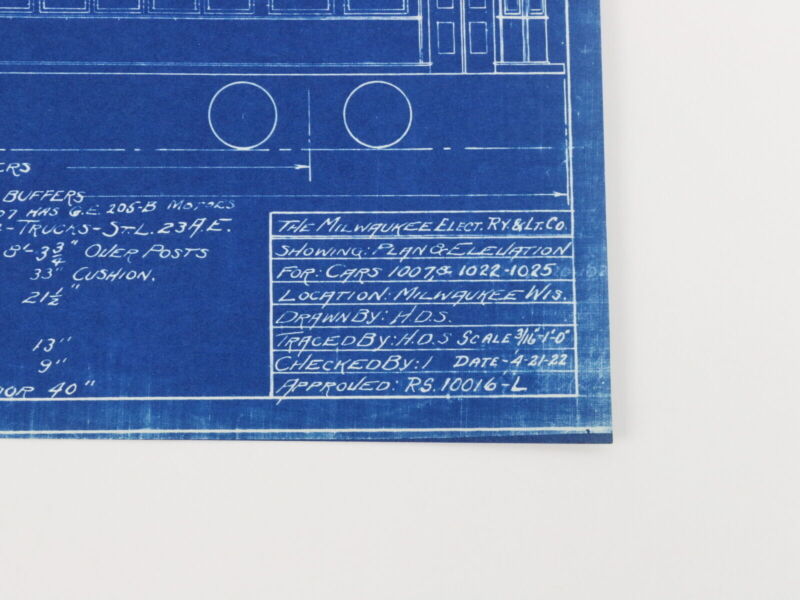 ERS
BUFFERS
07 HAS G.E. 205-B MOTORS
-TRUCKS-ST.L. 23 A.E.
8'-3 3/4" OVER POSTS
33" CUSHION.
21 1/2"
13"
9"
OOR 40"
THE MILWAUKEE ELECT. RY. & LT. CO.
SHOWING: PLAN & ELEVATION
FOR: CARS 1007, & 1022-1025
LOCATION: MILWAUKEE WIS.
DRAWN BY: H.D.S.
TRACED BY: H.D.S SCALE 3/16"-1'-0"
CHECKED BY: 1 DATE-4-21-22
APPROVED: RS. 10016-L